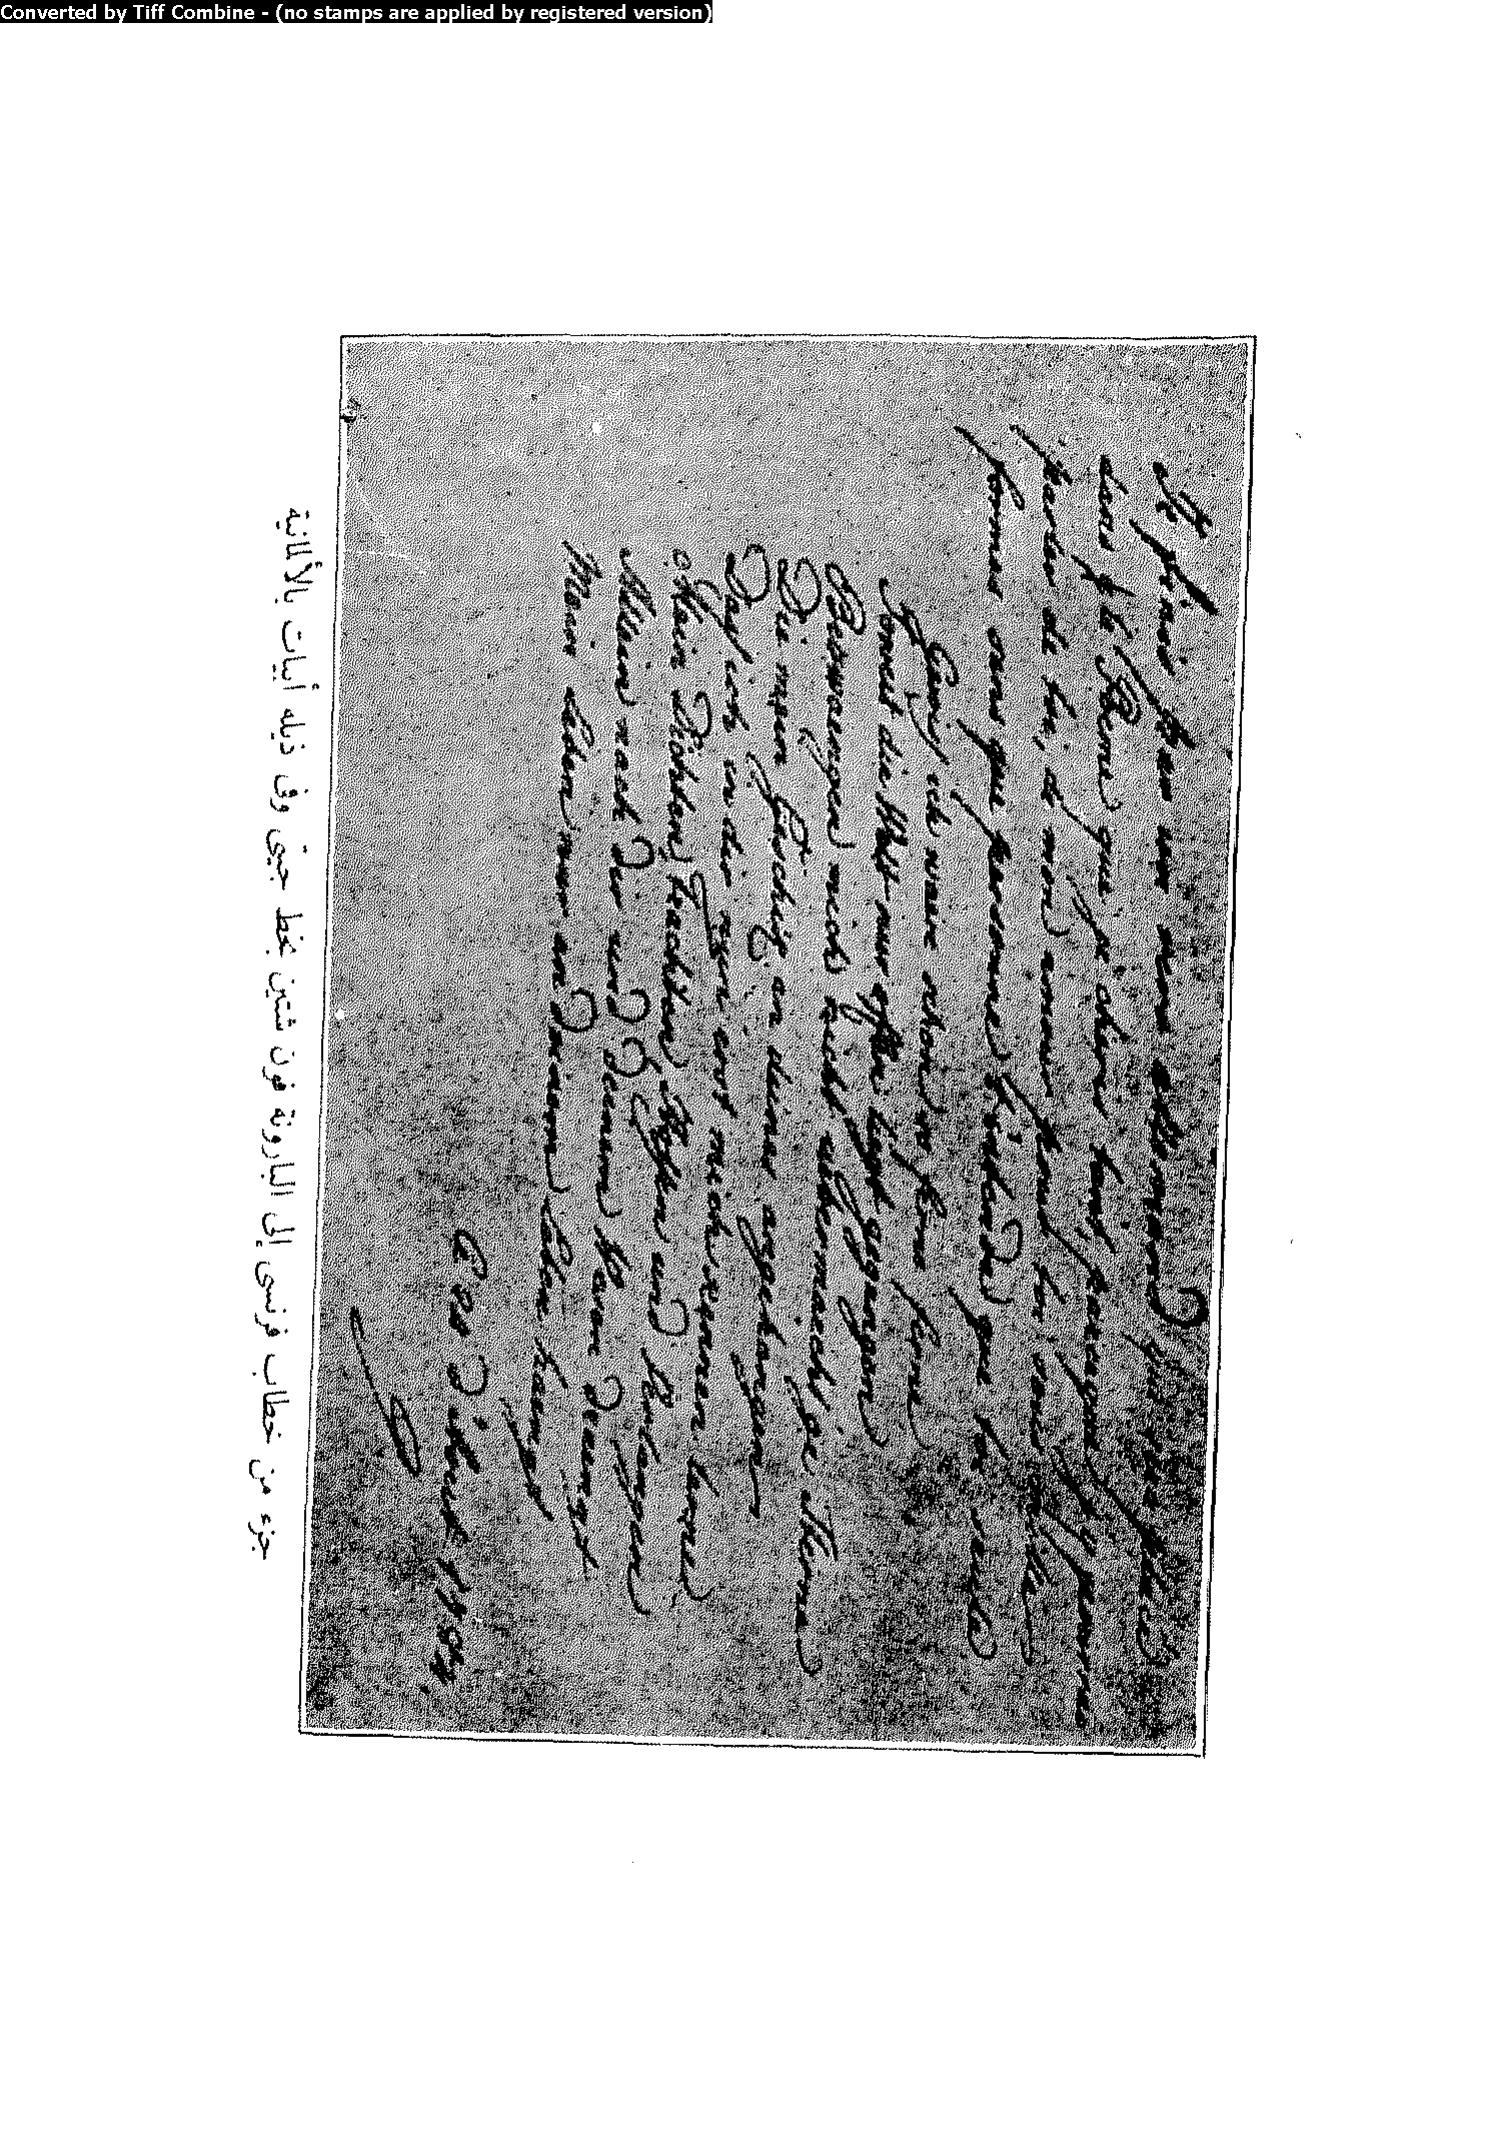 Converted by Tiff Combine - (no stamps are applied by registered version)
Je finis par un vers allemand qui sera placé
dans le Poeme que je cheris tant, parceque j'y pourrai
parler de toi, de mon amour pour toi sous mille
formes sans que personne l'entende que toi seule
Gang ich wär schon so fern, fern
soweit die Welt nur offen liegt gegangen
Bezwängen mich nicht übermächt'ge Sterne
Die mein Geschick an deines angehangen
Daß ich in dir nun erst mich kennen lerne
Mein Dichten, trachten, Hoffen und Verlangen
Allein nach dir und deinem Wesen drängt
Mein Leben nur an deinem Leben hängt
Ce 20 d'Aout 1784.
G
جزء من خطاب فرنسى إلى البارونة فون شتين بخط جيتى وفى ذيله أبيات بالألمانية